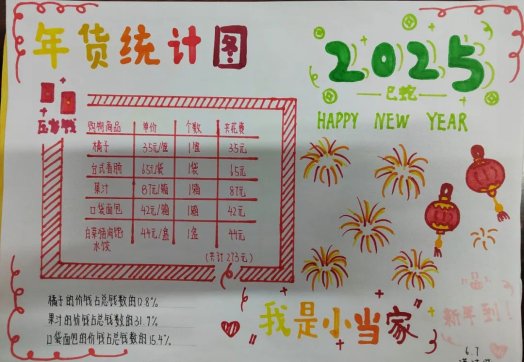 年货统计图
2025
巳蛇
HAPPY NEW YEAR
压岁钱
购物商品 单价 个数 共花费
橘子 35元/箱 1箱 35元
台式香肠 65元/袋 1袋 65元
果汁 87元/箱 1箱 87元
口袋面包 42元/箱 1箱 42元
水饺 44元/盒 1盒 44元
(共计273元)
橘子的价钱占总钱数的0.8%
果汁的价钱占总钱数的31.7%
口袋面包的价钱占总钱数的15.4%
"我是小当家"
新年到!